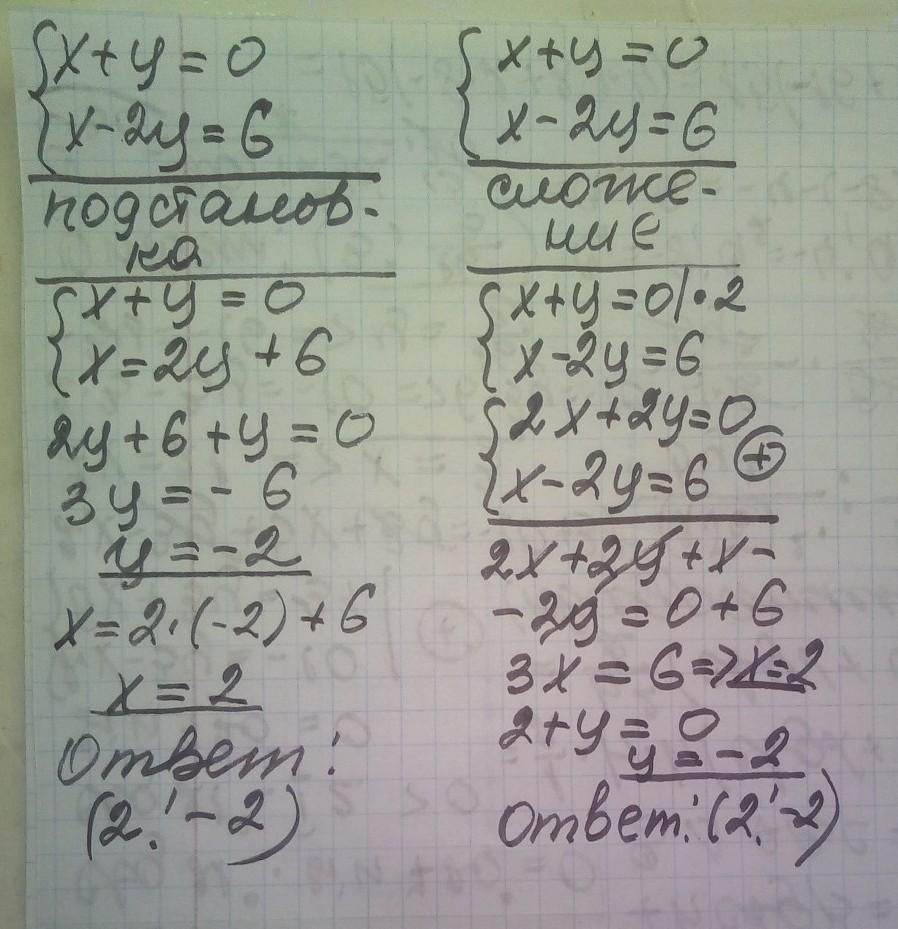 {x+y=0
x-2y=6
подстанов-
ка
{x+y=0
x=2y+6
2y+6+y=0
3y=-6
y=-2
x=2·(-2)+6
x=2
Ответ:
(2;-2)
{x+y=0
x-2y=6
сложе-
ние
{x+y=0|·2
x-2y=6
{2x+2y=0
x-2y=6 (+)
2x+2y+x-
-2y=0+6
3x=6=>x=2
2+y=0
y=-2
Ответ:(2;-2)